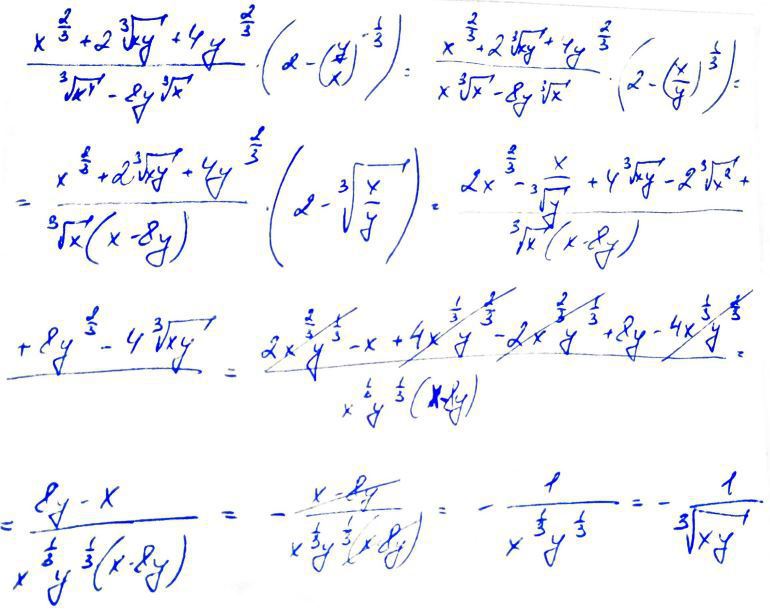 \frac{x^{\frac{2}{3}} + 2\sqrt[3]{xy} + 4y^{\frac{2}{3}}}{\sqrt[3]{x^4} - 8y\sqrt[3]{x}} \cdot \left(2 - \left(\frac{y}{x}\right)^{-\frac{1}{3}}\right) = \frac{x^{\frac{2}{3}} + 2\sqrt[3]{xy} + 4y^{\frac{2}{3}}}{x\sqrt[3]{x} - 8y\sqrt[3]{x}} \cdot \left(2 - \left(\frac{x}{y}\right)^{\frac{1}{3}}\right) =
= \frac{x^{\frac{2}{3}} + 2\sqrt[3]{xy} + 4y^{\frac{2}{3}}}{\sqrt[3]{x}(x - 8y)} \cdot \left(2 - \sqrt[3]{\frac{x}{y}}\right) = \frac{2x^{\frac{2}{3}} - \frac{x}{\sqrt[3]{y}} + 4\sqrt[3]{xy} - 2\sqrt[3]{x^2} +}{\sqrt[3]{x}(x - 8y)}
\frac{+ 8y^{\frac{2}{3}} - 4\sqrt[3]{xy}}{} = \frac{2x^{\frac{2}{3}}y^{\frac{1}{3}} - x + 4x^{\frac{1}{3}}y^{\frac{2}{3}} - 2x^{\frac{2}{3}}y^{\frac{1}{3}} + 8y - 4x^{\frac{1}{3}}y^{\frac{2}{3}}}{x^{\frac{1}{3}}y^{\frac{1}{3}}(x - 8y)} =
= \frac{8y - x}{x^{\frac{1}{3}}y^{\frac{1}{3}}(x - 8y)} = -\frac{x - 8y}{x^{\frac{1}{3}}y^{\frac{1}{3}}(x - 8y)} = -\frac{1}{x^{\frac{1}{3}}y^{\frac{1}{3}}} = -\frac{1}{\sqrt[3]{xy}}